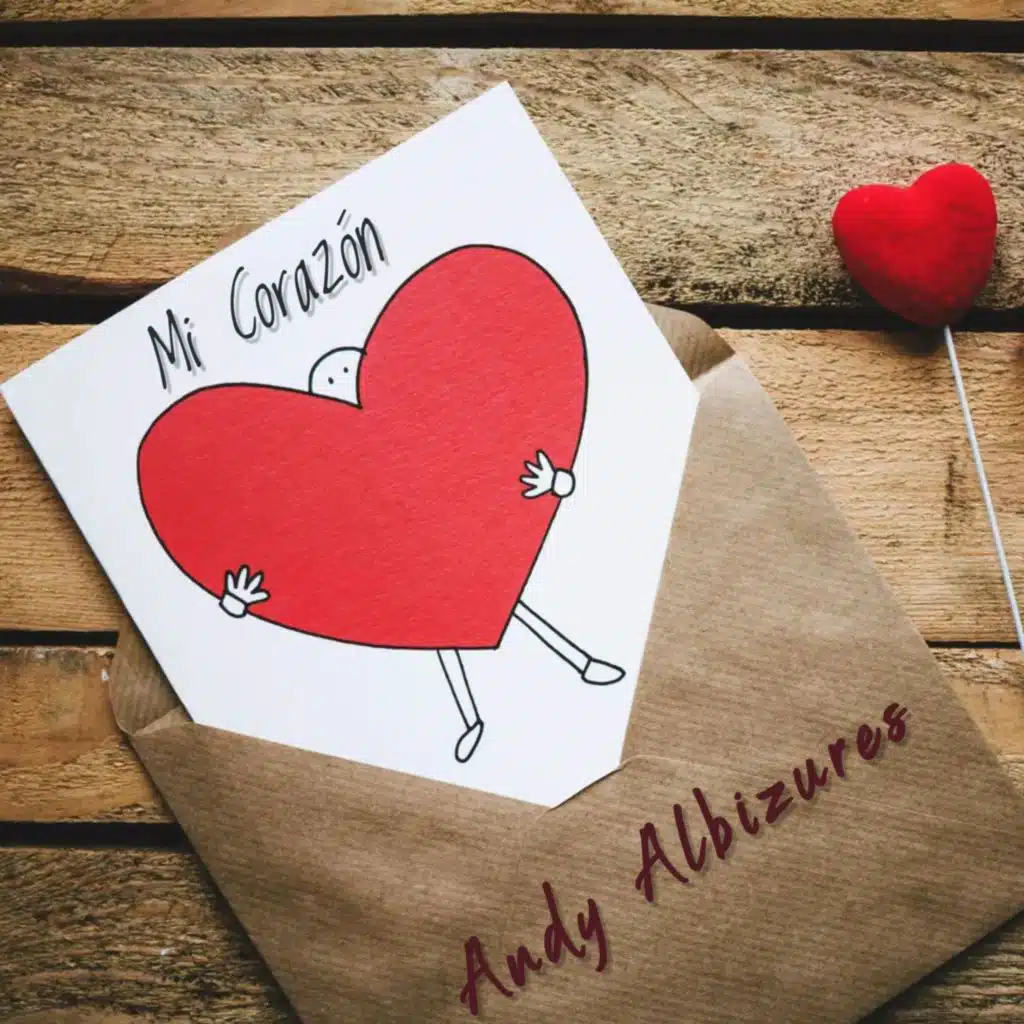 Mi Corazón
Andy Albizures